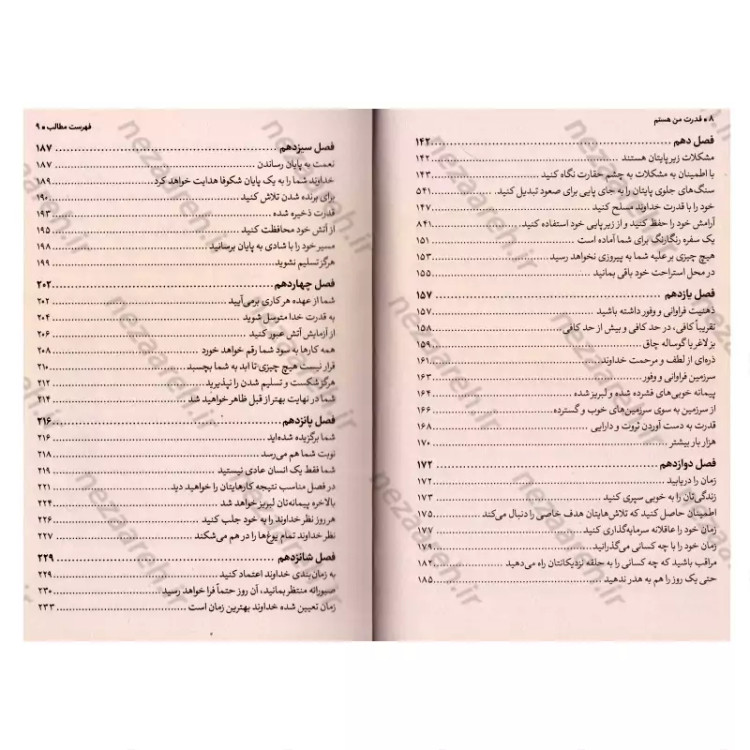 ۸ ■ قدرت من هستم
فصل دهم ۱۴۲
مشکلات زیرپایتان هستند ۱۴۲
با اطمینان به مشکلات به چشم حقارت نگاه کنید ۱۴۳
سنگ‌های جلوی پایتان را به جای پایی برای صعود تبدیل کنید ۵۴۱
خود را با قدرت خداوند مسلح کنید ۱۴۷
آرامش خود را حفظ کنید و از زیرپایی خود استفاده کنید ۸۴۱
یک سفره رنگارنگ برای شما آماده است ۱۵۱
هیچ چیزی بر علیه شما به پیروزی نخواهد رسید ۱۵۳
در محل استراحت خود باقی بمانید ۱۵۵
فصل یازدهم ۱۵۷
ذهنیت فراوانی و وفور داشته باشید ۱۵۷
تقریباً کافی، در حد کافی و بیش از حد کافی ۱۵۸
بز لاغر یا گوساله چاق ۱۵۹
ذره‌ای از لطف و مرحمت خداوند ۱۶۱
سرزمین فراوانی و وفور ۱۶۳
پیمانه خوبی‌های فشرده شده و لبریز شده ۱۶۴
از سرزمین به سوی سرزمین‌های خوب و گسترده ۱۶۶
قدرت به دست آوردن ثروت و دارایی ۱۶۸
هزار بار بیشتر ۱۷۰
فصل دوازدهم ۱۷۲
زمان را دریابید ۱۷۲
زندگی‌تان را به خوبی سپری کنید ۱۷۳
اطمینان حاصل کنید که تلاش‌هایتان هدف خاصی را دنبال می‌کند ۱۷۵
زمان خود را عاقلانه سرمایه‌گذاری کنید ۱۷۷
زمان خود را با چه کسانی می‌گذرانید ۱۷۹
مراقب باشید که چه کسانی را به حلقه نزدیکانتان راه می‌دهید ۱۸۲
حتی یک روز را هم به هدر ندهید ۱۸۵
فهرست مطالب ■ ۹
فصل سیزدهم ۱۸۷
نعمت به پایان رساندن ۱۸۷
خداوند شما را به یک پایان شکوفا هدایت خواهد کرد ۱۸۹
برای برنده شدن تلاش کنید ۱۹۰
قدرت ذخیره شده ۱۹۳
از آتش خود محافظت کنید ۱۹۵
مسیر خود را با شادی به پایان برسانید ۱۹۸
هرگز تسلیم نشوید ۱۹۹
فصل چهاردهم ۲۰۲
شما از عهده هر کاری برمی‌آیید ۲۰۲
به قدرت خدا متوسل شوید ۲۰۴
از آزمایش آتش عبور کنید ۲۰۶
همه کارها به سود شما رقم خواهد خورد ۲۰۸
قرار نیست هیچ چیزی تا ابد به شما بچسبد ۲۱۰
هرگز شکست و تسلیم شدن را نپذیرید ۲۱۲
شما در نهایت بهتر از قبل ظاهر خواهید شد ۲۱۴
فصل پانزدهم ۲۱۶
شما برگزیده شده‌اید ۲۱۶
نوبت شما هم می‌رسد ۲۱۸
شما فقط یک انسان عادی نیستید ۲۱۹
در فصل مناسب نتیجه کارهایتان را خواهید دید ۲۲۱
بالاخره پیمانه‌تان لبریز خواهد شد ۲۲۴
هر روز نظر خداوند را به خود جلب کنید ۲۲۶
نظر خداوند تمام یوغ‌ها را در هم می‌شکند ۲۲۷
فصل شانزدهم ۲۲۹
به زمان‌بندی خداوند اعتماد کنید ۲۲۹
صبورانه منتظر بمانید، آن روز حتماً فرا خواهد رسید ۲۳۰
زمان تعیین شده خداوند بهترین زمان است ۲۳۳
nezaareh.ir